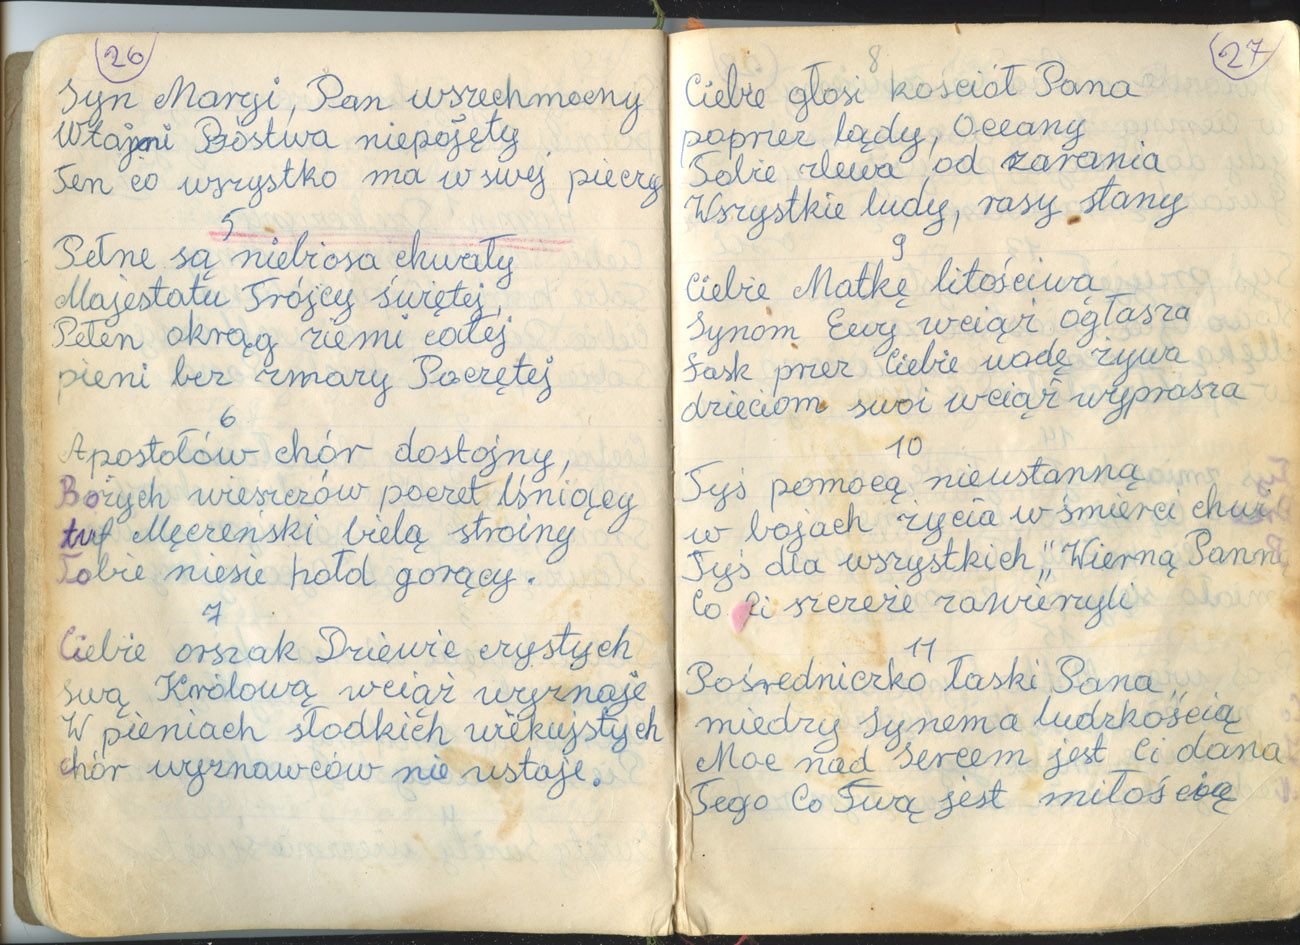 26
Syn Maryi, Pan wszechmocny
W tajni Bóstwa niepojęty
Ten co wszystko ma w swej pieczy
5
Pełne są niebiosa chwały
Majestatu Trójcy świętej,
Pełen okrąg ziemi całej
pieni bez zmazy Poczętej
6
Apostołów chór dostojny,
Bożych wieszczów poczet lśniący
tuf Męczeński bielą stroiny
Tobie niesie hołd gorący.
7
Ciebie orszak Dziewic czystych
swą Królową wciąż wyznaje
W pieniach słodkich wiekuistych
chór wyznawców nie ustaje.
27
8
Ciebie głosi kościół Pana
poprzez lądy, Oceany
Tobie śpiewa od zarania
Wszystkie ludy, rasy stany
9
Ciebie Matkę litościwą
Synom Ewy wciąż ogłasza
Łask przez Ciebie wodę żywa
dzieciom swoi wciąż wyprasza
10
Tyś pomocą nieustanną
w bojach życia w śmierci chwi
Tyś dla wszystkich „Wierną Panną
Co Ci szczeże zawierzyli
11
Pośredniczko łaski Pana
miedzy Synem a ludzkością
Moc nad Sercem jest Ci dana
Tego Co Twą jest miłością